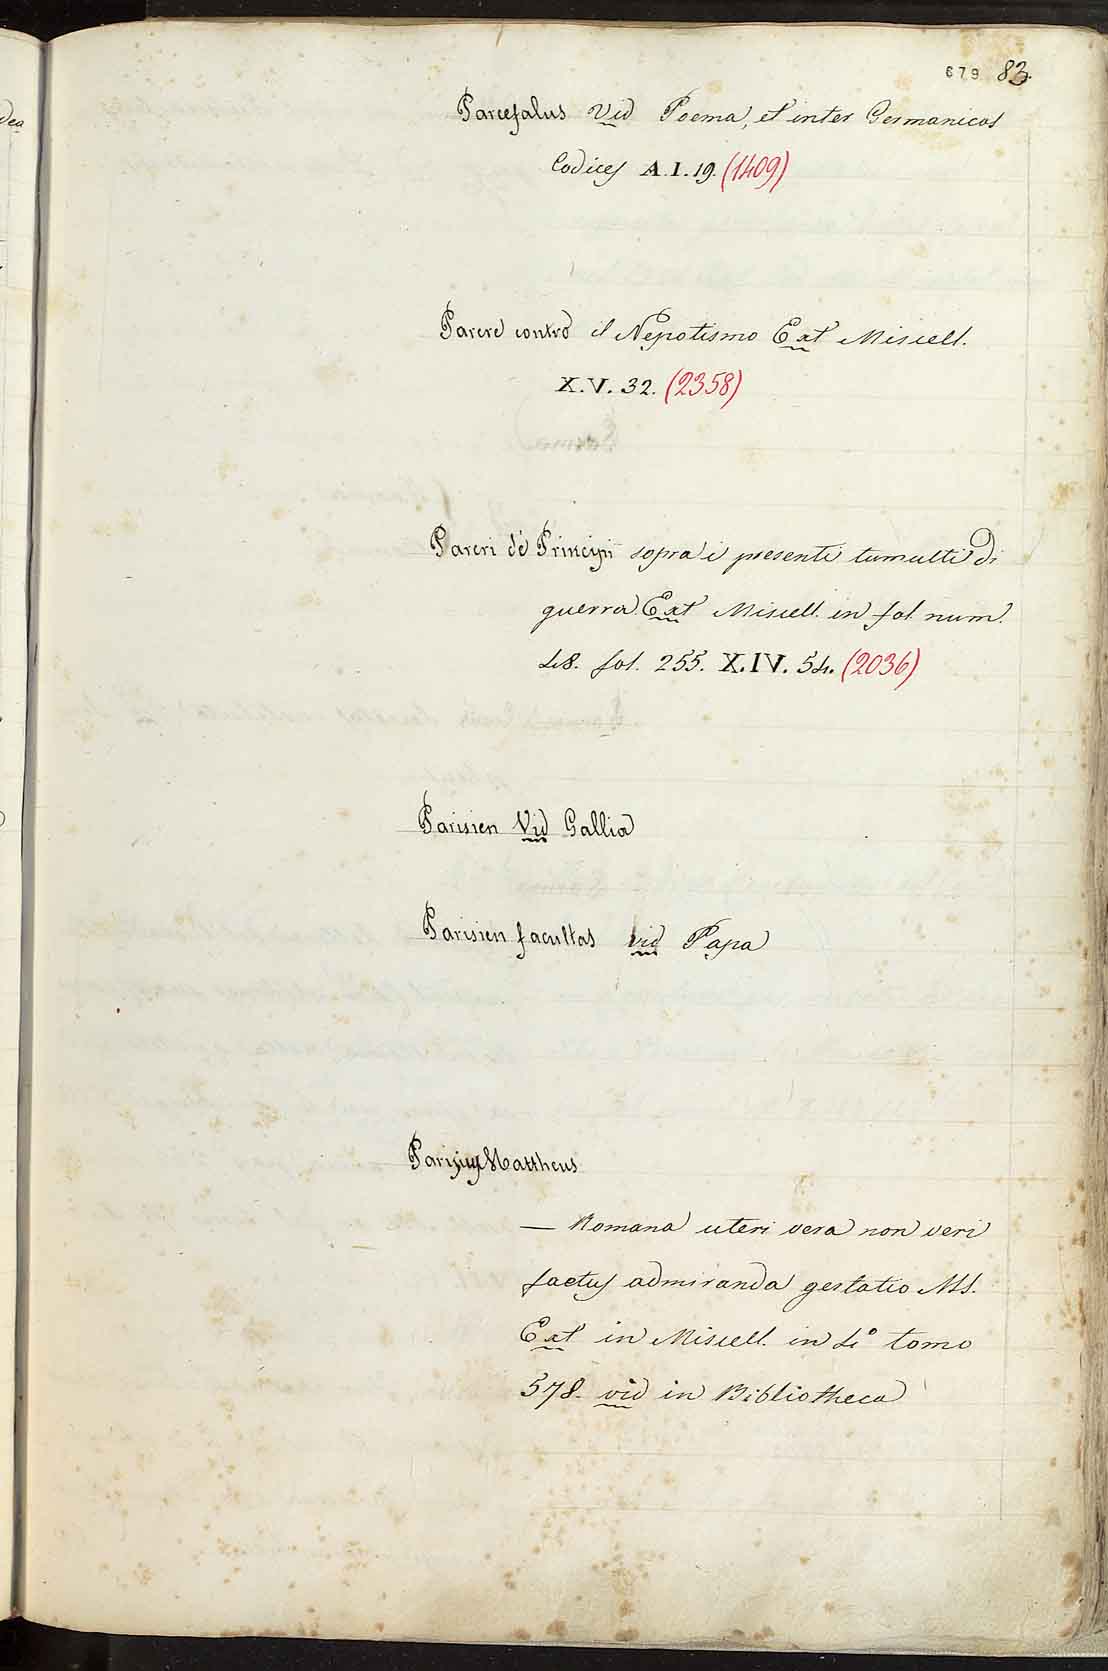 679 83.
Parcefalus Vid Poema, et inter Germanicos
Codices A.I.19. (1409)
Parere contro il Nepotismo Ext Miscell.
X.V.32. (2358)
Pareri de Principi sopra i presenti tumulti di
guerra Ext Miscell. in fol. num.
48. fol. 255. X.IV.54. (2036)
Parisien Vid Gallia
Parisien facultas vid Papa
Parisius Mattheus
— Romana uteri vera non veri
faetus admiranda gestatio MS.
Ext in Miscell. in 4° tomo
578. vid in Bibliotheca